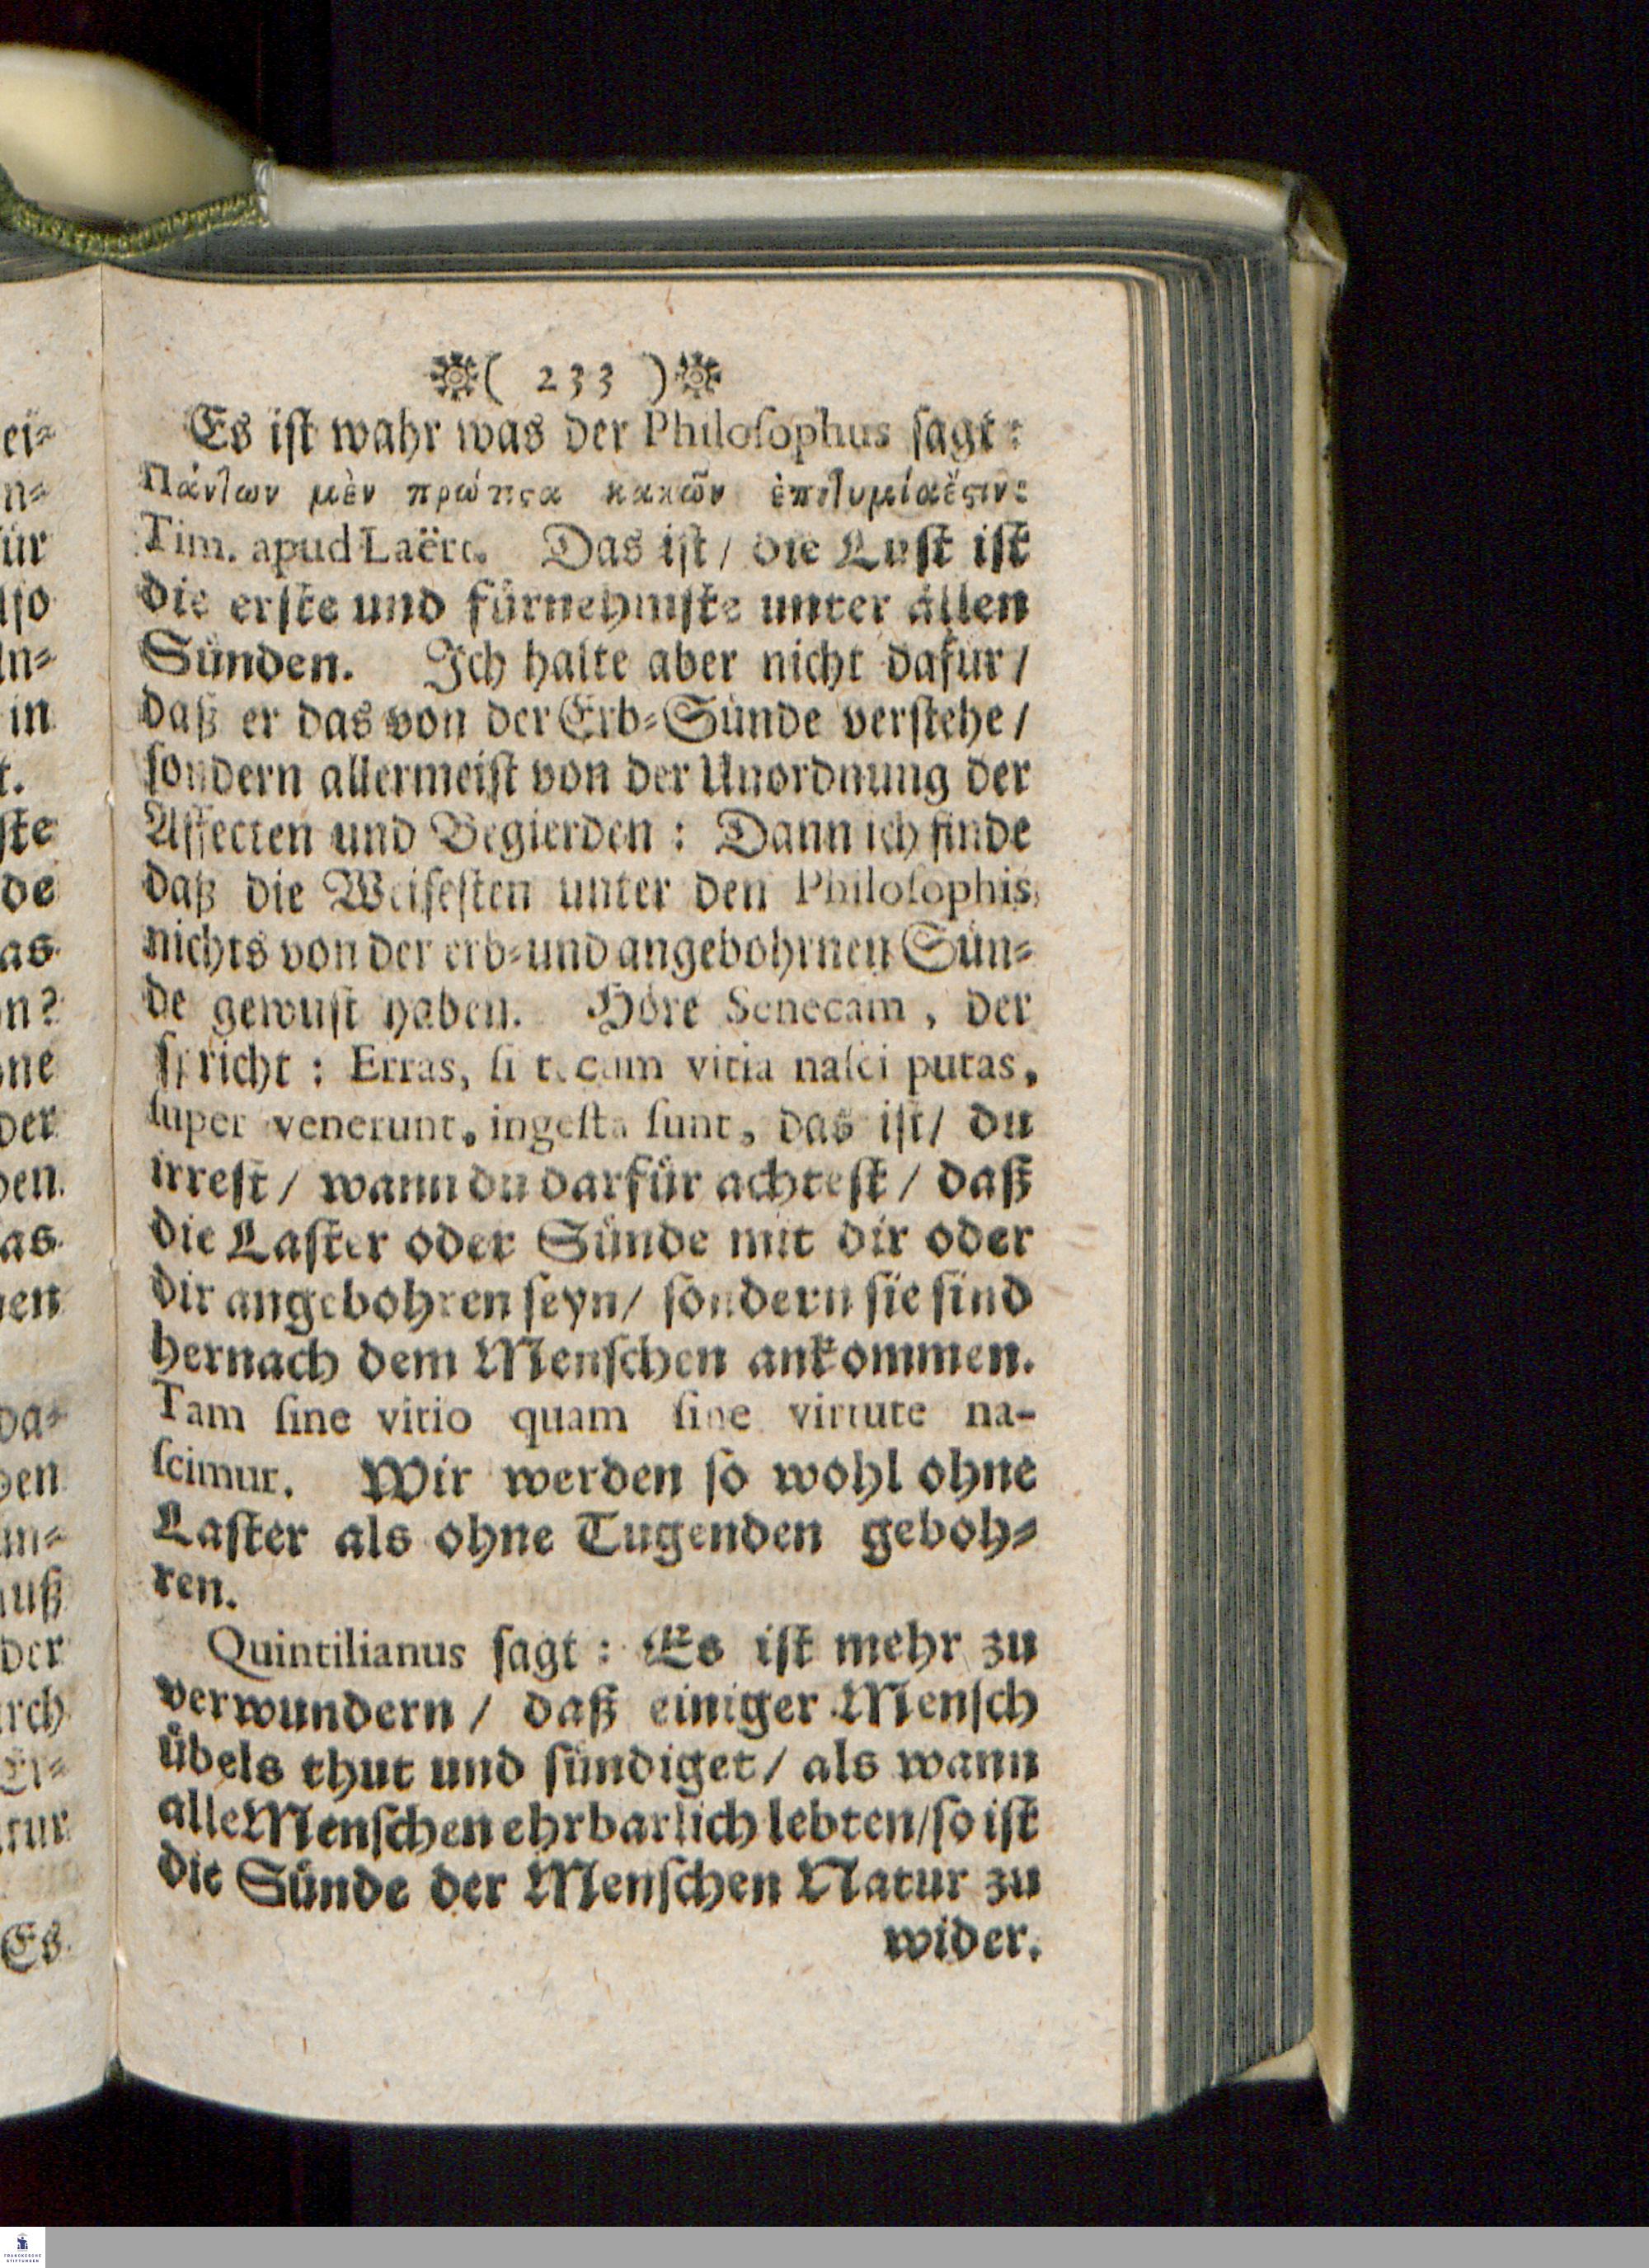 ( 233 )
Es iſt wahr was der Philoſophus ſagt:
Πάντων μὲν πρώτιϛα κακῶν ἐπιθυμία ἔϛιν:
Tim. apud Laërt. Das iſt / die Luſt iſt
die erſte und fürnehmſte unter allen
Sünden. Ich halte aber nicht dafür /
daß er das von der Erb-Sünde verſtehe /
ſondern allermeiſt von der Unordnung der
Affecten und Begierden : Dann ich finde
daß die Weiſeſten unter den Philoſophis,
nichts von der erb-und angebohrnen Sün-
de gewuſt haben. Höre Senecam , der
ſpricht : Erras, ſi tecum vitia naſci putas,
ſuper venerunt, ingeſta ſunt, das iſt / du
irreſt / wann du darfür achteſt / daß
die Laſter oder Sünde mit dir oder
dir angebohren ſeyn / ſondern ſie ſind
hernach dem Menſchen ankommen.
Tam ſine vitio quam ſine virtute na-
ſcimur. Wir werden ſo wohl ohne
Laſter als ohne Tugenden geboh-
ren.
Quintilianus ſagt : Es iſt mehr zu
verwundern / daß einiger Menſch
übels thut und ſündiget / als wann
alle Menſchen ehrbarlich lebten / ſo iſt
die Sünde der Menſchen Natur zu
wider.